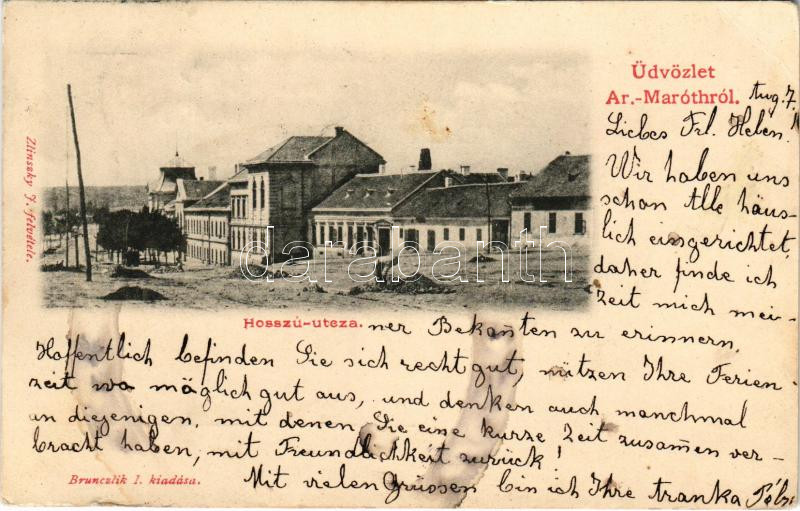 Üdvözlet
Ar.-Maróthról.
Aug. 7.
Liebes Frl. Helen!
Wir haben uns
schon Alle häus-
lich eingerichtet,
daher finde ich
Zeit mich mei-
ner Bekan̄ten zu erinnern.
Hoffentlich befinden Sie sich recht gut, nützen Ihre Ferien-
zeit wo möglich gut aus, und denken auch manchmal
an diejenigen, mit denen Sie eine kurze Zeit zusam̄en ver-
bracht haben, mit Freundlichkeit zurück!
Mit vielen Grüssen bin ich Ihre
Zlinszky J. felvétele.
Hosszú-uteza.
Brunczlik I. kiadása.
darabanth